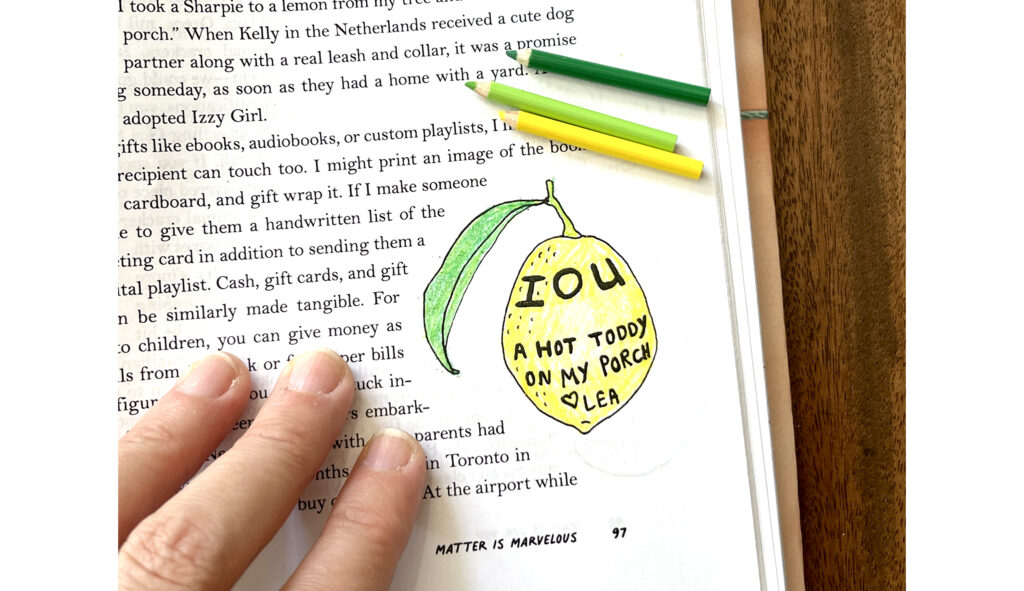 I took a Sharpie to a lemon from my tree and
porch." When Kelly in the Netherlands received a cute dog
partner along with a real leash and collar, it was a promise
g someday, as soon as they had a home with a yard.
adopted Izzy Girl.
gifts like ebooks, audiobooks, or custom playlists, I
recipient can touch too. I might print an image of the book
cardboard, and gift wrap it. If I make someone
e to give them a handwritten list of the
ting card in addition to sending them a
ital playlist. Cash, gift cards, and gift
n be similarly made tangible. For
to children, you can give money as
ls from k or per bills
figur ou uck in-
s embark-
with parents had
nths in Toronto in
buy At the airport while
IOU
A HOT TODDY
ON MY PORCH
♡LEA
MATTER IS MARVELOUS 97